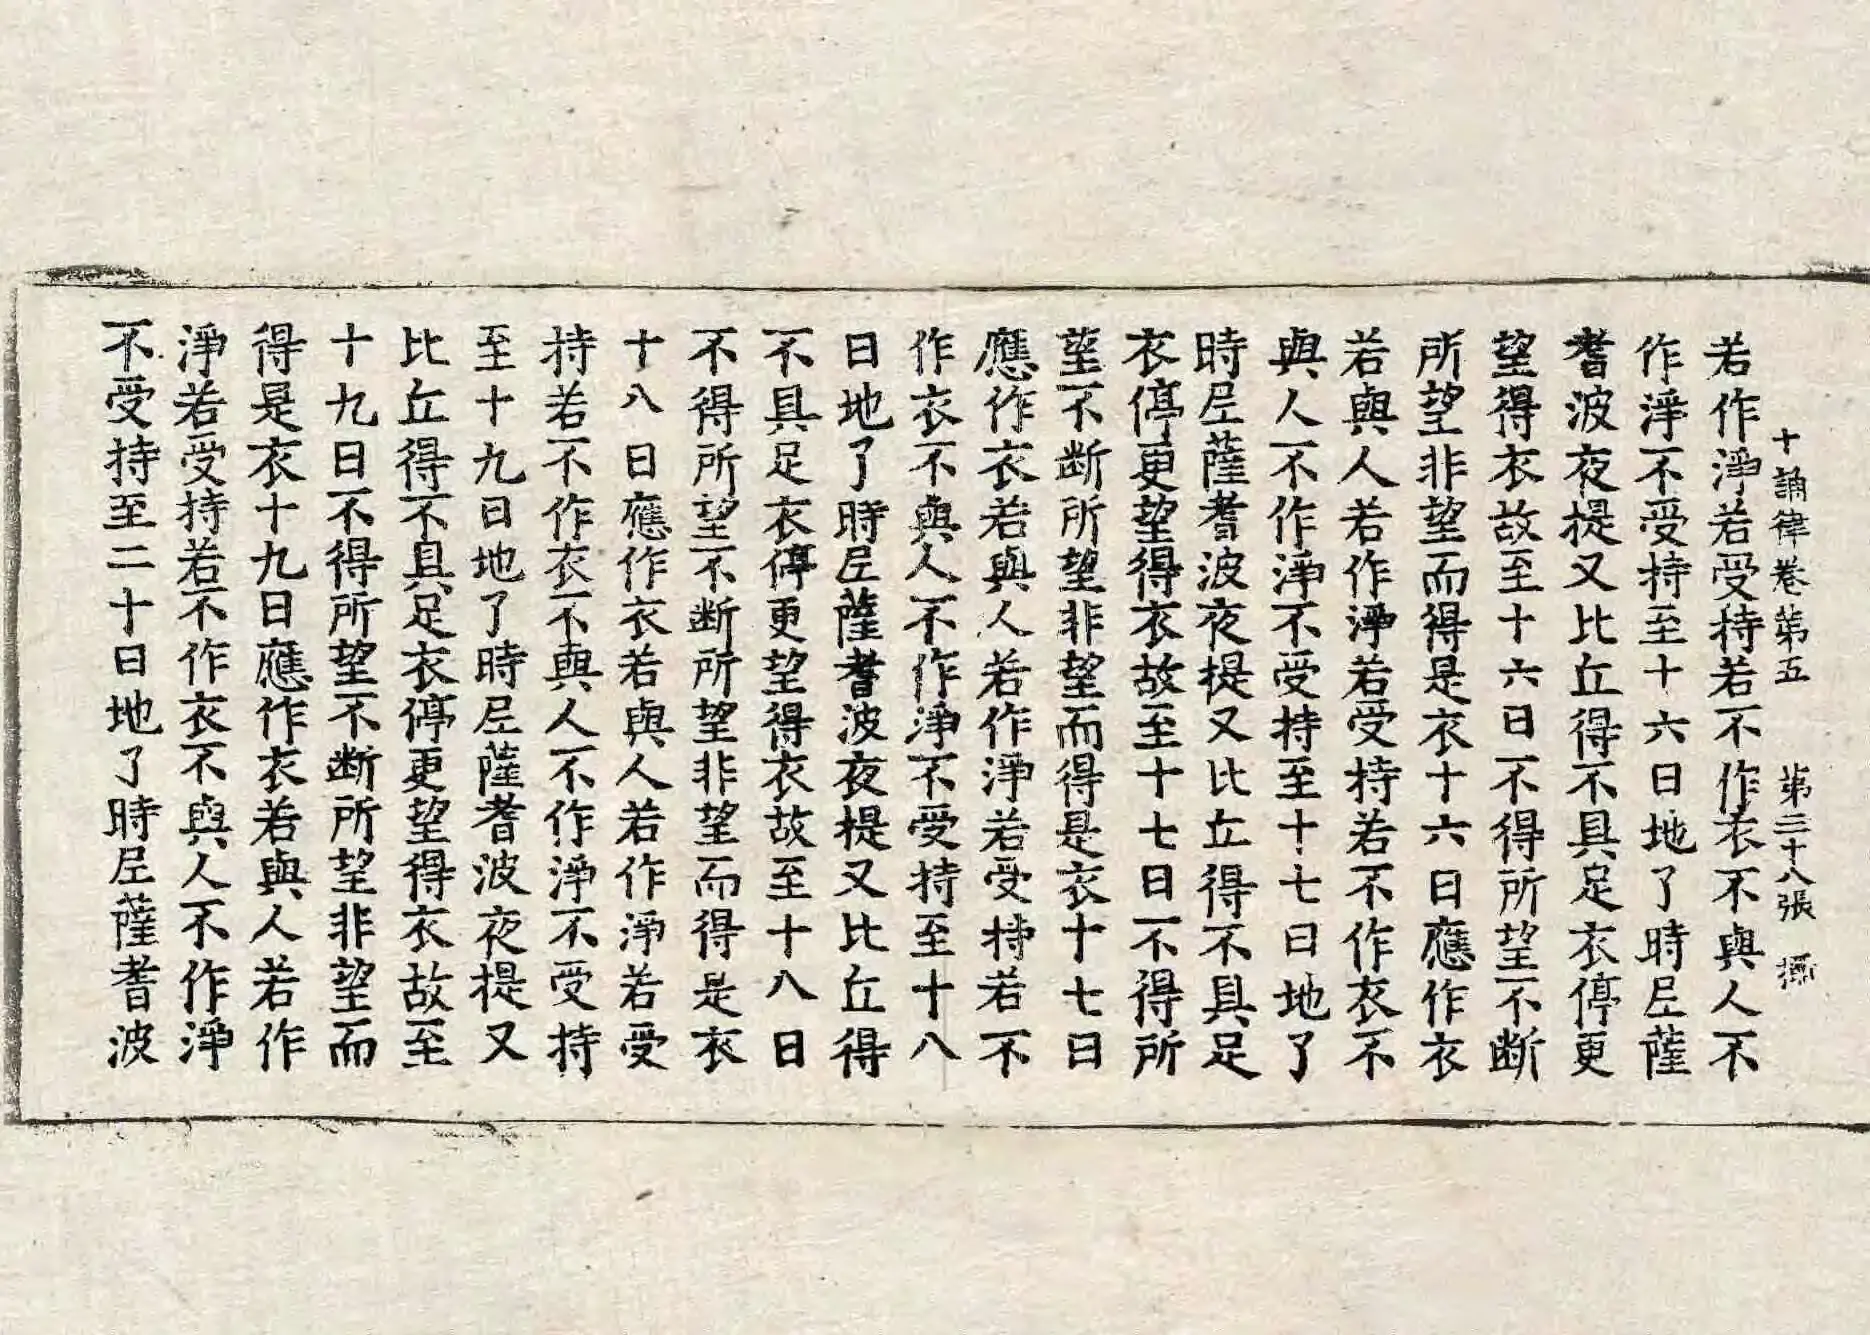 十誦律卷第五 第三十八張 攝
若作淨若受持若不作衣不與人不
作淨不受持至十六日地了時尼薩
耆波夜提又比丘得不具足衣停更
望得衣故至十六日不得所望不断
所望非望而得是衣十六日應作衣
若與人若作淨若受持若不作衣不
與人不作淨不受持至十七日地了
時尼薩耆波夜提又比丘得不具足
衣停更望得衣故至十七日不得所
望不断所望非望而得是衣十七日
應作衣若與人若作淨若受持若不
作衣不與人不作淨不受持至十八
日地了時尼薩耆波夜提又比丘得
不具足衣停更望得衣故至十八日
不得所望不断所望非望而得是衣
十八日應作衣若與人若作淨若受
持若不作衣不與人不作淨不受持
至十九日地了時尼薩耆波夜提又
比丘得不具足衣停更望得衣故至
十九日不得所望不断所望非望而
得是衣十九日應作衣若與人若作
淨若受持若不作衣不與人不作淨
不受持至二十日地了時尼薩耆波